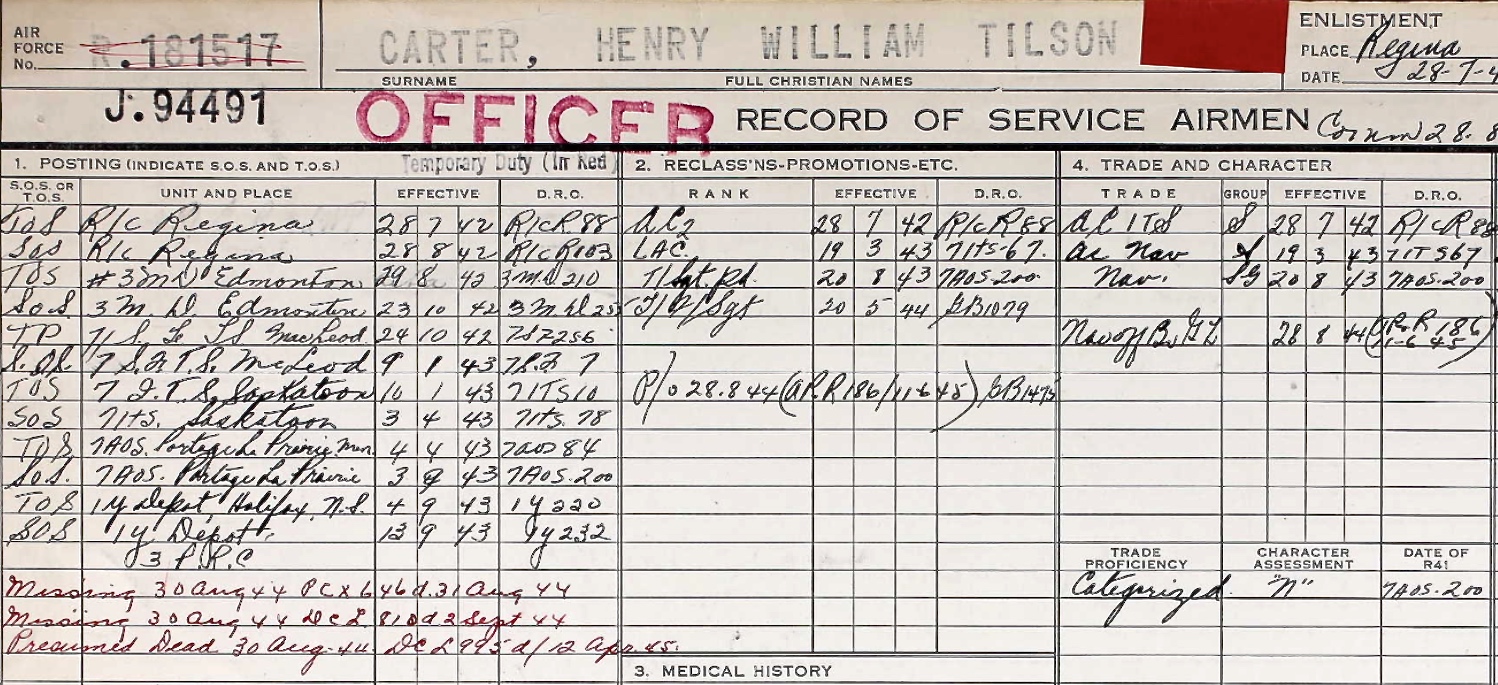 AIR FORCE No. R.181517 CARTER, HENRY WILLIAM TILSON
SURNAME FULL CHRISTIAN NAMES
ENLISTMENT
PLACE Regina
DATE 28-7-4
J.94491 OFFICER RECORD OF SERVICE AIRMEN Comm 28. 8
1. POSTING (INDICATE S.O.S. AND T.O.S.) Temporary Duty (In Red)
S.O.S. OR T.O.S. UNIT AND PLACE EFFECTIVE D.R.O.
TOS R/c Regina 28 7 42 R/cR.88
SOS R/c Regina 28 8 42 R/cR103
TOS #3 M.D Edmonton 29 8 42 3 M.D 210
S.o.S. 3 M. D. Edmonton 23 10 42 3 M.D
TP 7 S. F. T.S MacLeod 24 10 42 256
S.O.S. 7 S.F.T.S. McLeod 9 1 43 7
TOS 7 I.T.S. Saskatoon 10 1 43 7ITS10
SOS 7ITS. Saskatoon 3 4 43 7ITS. 78
TOS 7AOS. Portage La Prairie Man. 4 4 43 7AOS 84
S.o.S. 7AOS. Portage La Prairie 3 9 43 7AOS-200
TOS 1Y Depot, Halifax, N.S. 4 9 43 1Y 220
SOS 1Y Depot. 13 9 43 1Y 232
3 P.R.C
Missing 30 Aug 44 PCX 646 d.31 Aug 44
Missing 30 Aug 44 DCL 810 d 2 Sept 44
Presumed Dead 30 Aug. 44. DCL 995 d/ 12 Apr. 45.
2. RECLASS'NS-PROMOTIONS-ETC.
RANK EFFECTIVE D.R.O.
AC2 28 7 42 R/cR88
LAC. 19 3 43 7ITS-67.
T/Sgt. Pd. 20 8 43 7AOS-200.
T/F/Sgt 20 5 44 GB1079
P/O 28.8.44 (A.P.R 186/11-6-45) GB1475
3. MEDICAL HISTORY
4. TRADE AND CHARACTER
TRADE GROUP EFFECTIVE D.R.O.
AC ITS S 28 7 42 R/cR88
AC Nav S 19 3 43 7ITS67
Nav. SG 20 8 43 7AOS-200
Nav 28 8 44 (A.P.R 186 11-6-45)
TRADE PROFICIENCY CHARACTER ASSESSMENT DATE OF R41
Categorized. "N" 7AOS-200